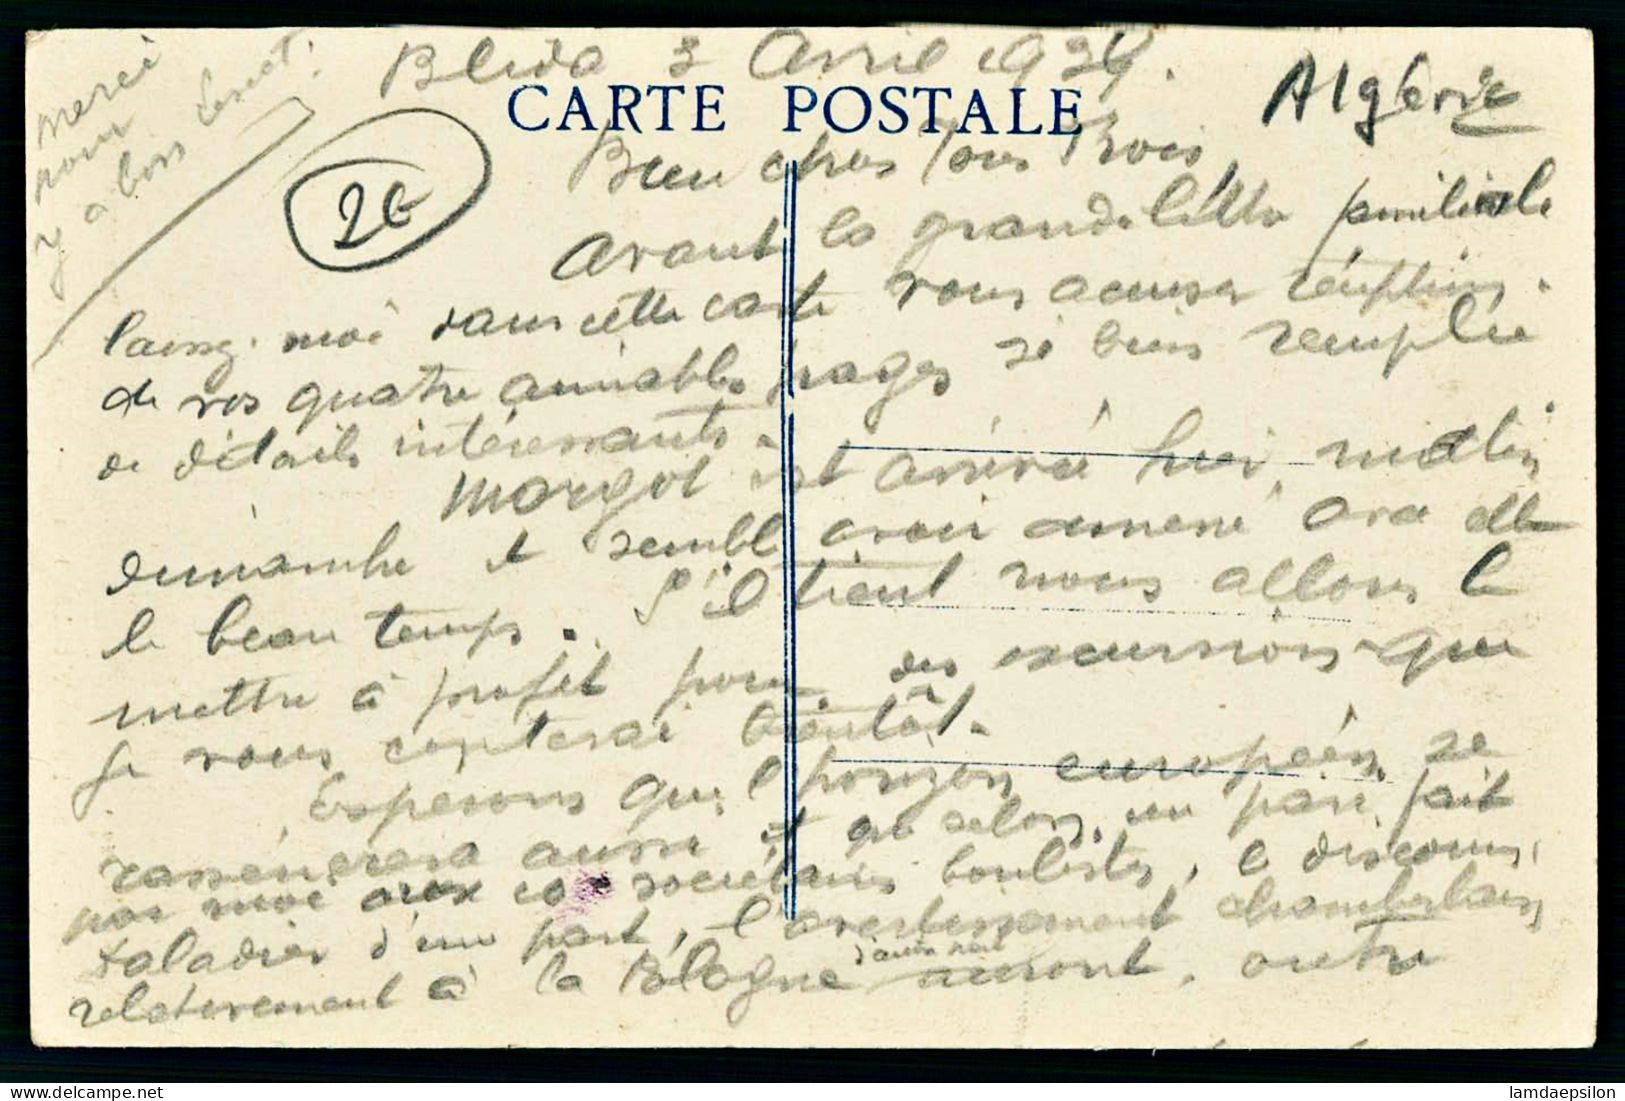 Blida 3 Avril 1939.
Algérie
CARTE POSTALE
merci
pour
y a bon
2€
Bien chers Tous Trois,
Avant la grande lettre familiale
laissez-moi dans cette carte vous accuser réception
de vos quatre aimables pages si bien remplie
de détails intéressants.
Margot est arrivée hier, matin
dimanche et semble avoir amené avec elle
le beau temps. S'il tient nous allons le
mettre à profit pour des excursions que
je vous conterai bientôt.
Espérons que l'horizon européen se
rassénérera aussi et selon un pari fait
par moi avec co sociétaires boulistes, le discours
Daladier d'une part, l'avertissement Chamberlain
relativement à la Pologne d'autre part auront, outre
lamdaepsilon